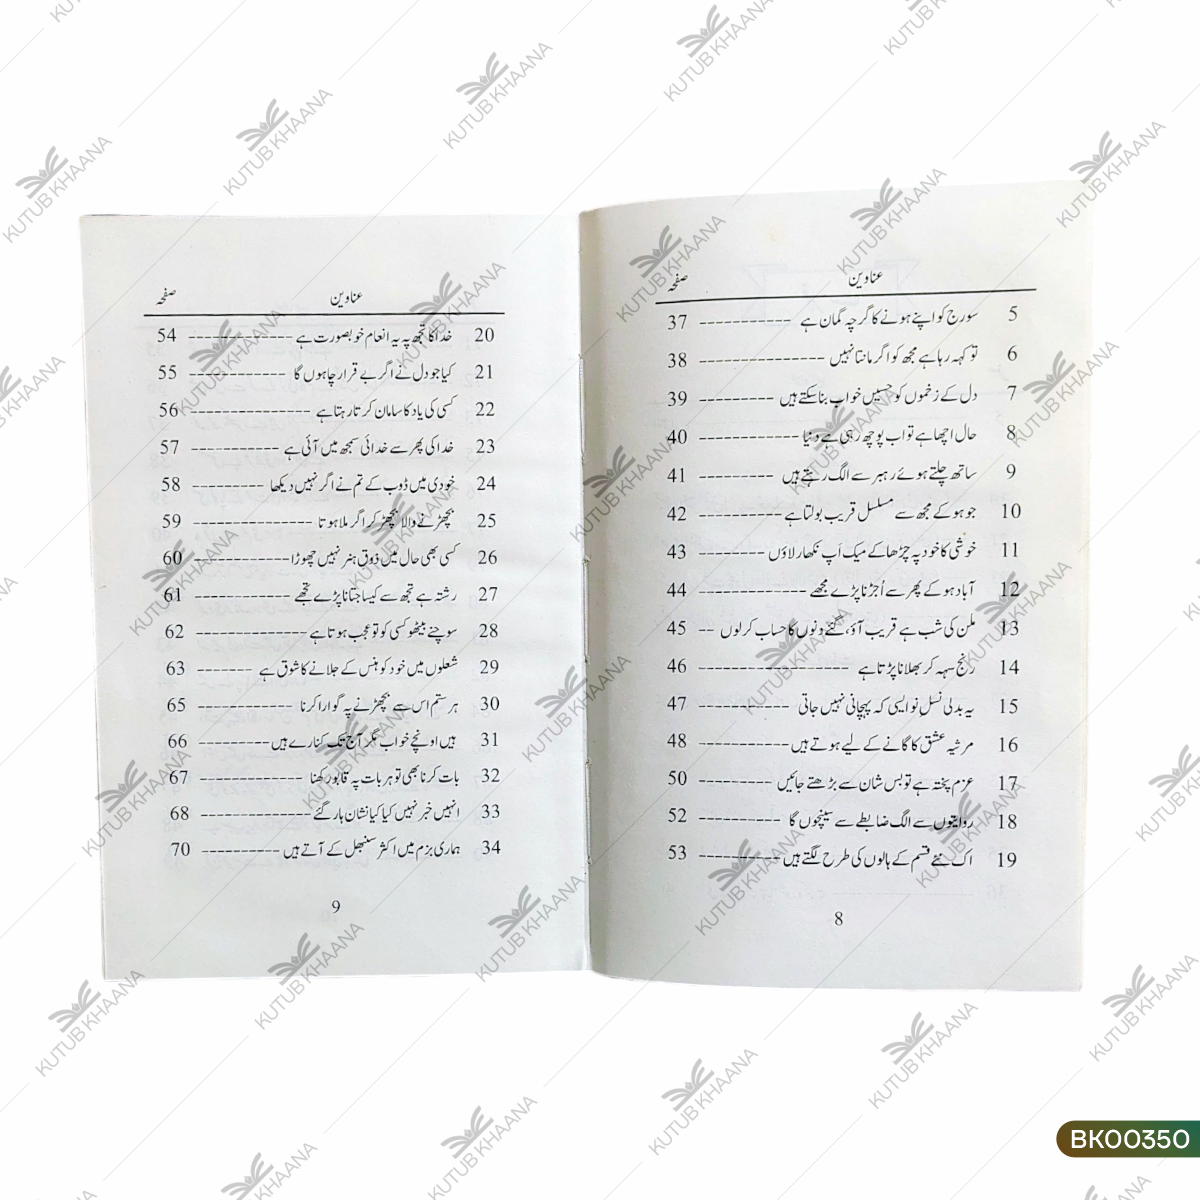 عناوین صفحہ
5 سورج کو اپنے ہونے کا گرچہ گمان ہے ------------ 37
6 تو کہہ رہا ہے مجھ کو اگر مانتا نہیں ---------------- 38
7 دل کے زخموں کو حسیں خواب بنا سکتے ہیں ---------- 39
8 حال اچھا ہے تو اب پوچھ رہی ہے دنیا ------------- 40
9 ساتھ چلتے ہوئے رہبر سے الگ رہتے ہیں ---------- 41
10 جو ہو کے مجھ سے مسلسل قریب بولتا ہے ----------- 42
11 خوشی کا خود پہ چڑھا کے میک اَپ نکھار لاؤں --------- 43
12 آباد ہو کے پھر سے اُجڑنا پڑے مجھے -------------- 44
13 ملن کی شب ہے قریب آؤ، گئے دنوں کا حساب کر لوں -- 45
14 رنج سہہ کر بھلانا پڑتا ہے ------------------- 46
15 یہ بدلی نسلِ نو ایسی کہ پہچانی نہیں جاتی ------------ 47
16 مرثیہ عشق کا گانے کے لیے ہوتے ہیں ------------ 48
17 عزم پختہ ہے تو بس شان سے بڑھتے جائیں ---------- 50
18 روایتوں سے الگ ضابطے سے سینچوں گا ----------- 52
19 اک نئے قسم کے ہالوں کی طرح لگتے ہیں ----------- 53
8
عناوین صفحہ
20 خدا کا تجھ پہ یہ انعام خوبصورت ہے -------------- 54
21 کیا جو دل نے اگر بے قرار چاہوں گا ------------- 55
22 کسی کی یاد کا سامان کرتا رہتا ہے ---------------- 56
23 خدا کی پھر سے خدائی سمجھ میں آئی ہے ------------ 57
24 خودی میں ڈوب کے تم نے اگر نہیں دیکھا ---------- 58
25 بچھڑنے والا بچھڑ کر اگر ملا ہوتا ---------------- 59
26 کسی بھی حال میں ذوقِ ہنر نہیں چھوڑا ------------- 60
27 رشتہ ہے تجھ سے کیسا جتانا پڑے تجھے ------------- 61
28 سوچنے بیٹھو کسی کو تو عجب ہوتا ہے -------------- 62
29 شعلوں میں خود کو ہنس کے جلانے کا شوق ہے ------- 63
30 ہر ستم اس سے بچھڑنے پہ گوارا کرنا ------------- 65
31 ہیں اونچے خواب مگر آج تک کنارے ہیں --------- 66
32 بات کرنا بھی تو ہر بات پہ قابو رکھنا ------------- 67
33 انہیں خبر نہیں کیا کیا نشان ہار گئے --------------- 68
34 ہماری بزم میں اکثر سنبھل کے آتے ہیں ---------- 70
9
KUTUB KHAANA
BK00350